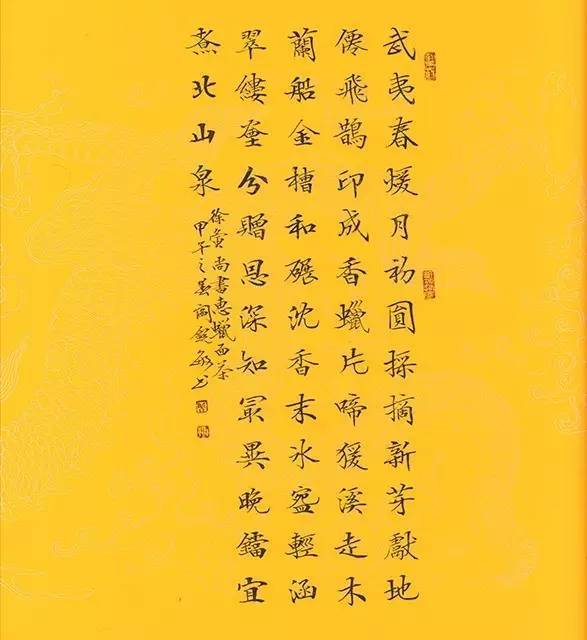 武夷春煖月初圓採摘新芽獻地
僊飛鵲印成香蠟片啼猨溪走木
蘭船金槽和碾沈香末冰盌輕涵
翠縷垔分贈恩深知冣異晚鐺宜
煮北山泉
徐夤尚書惠蠟面茶
甲午之春閻銳敏书